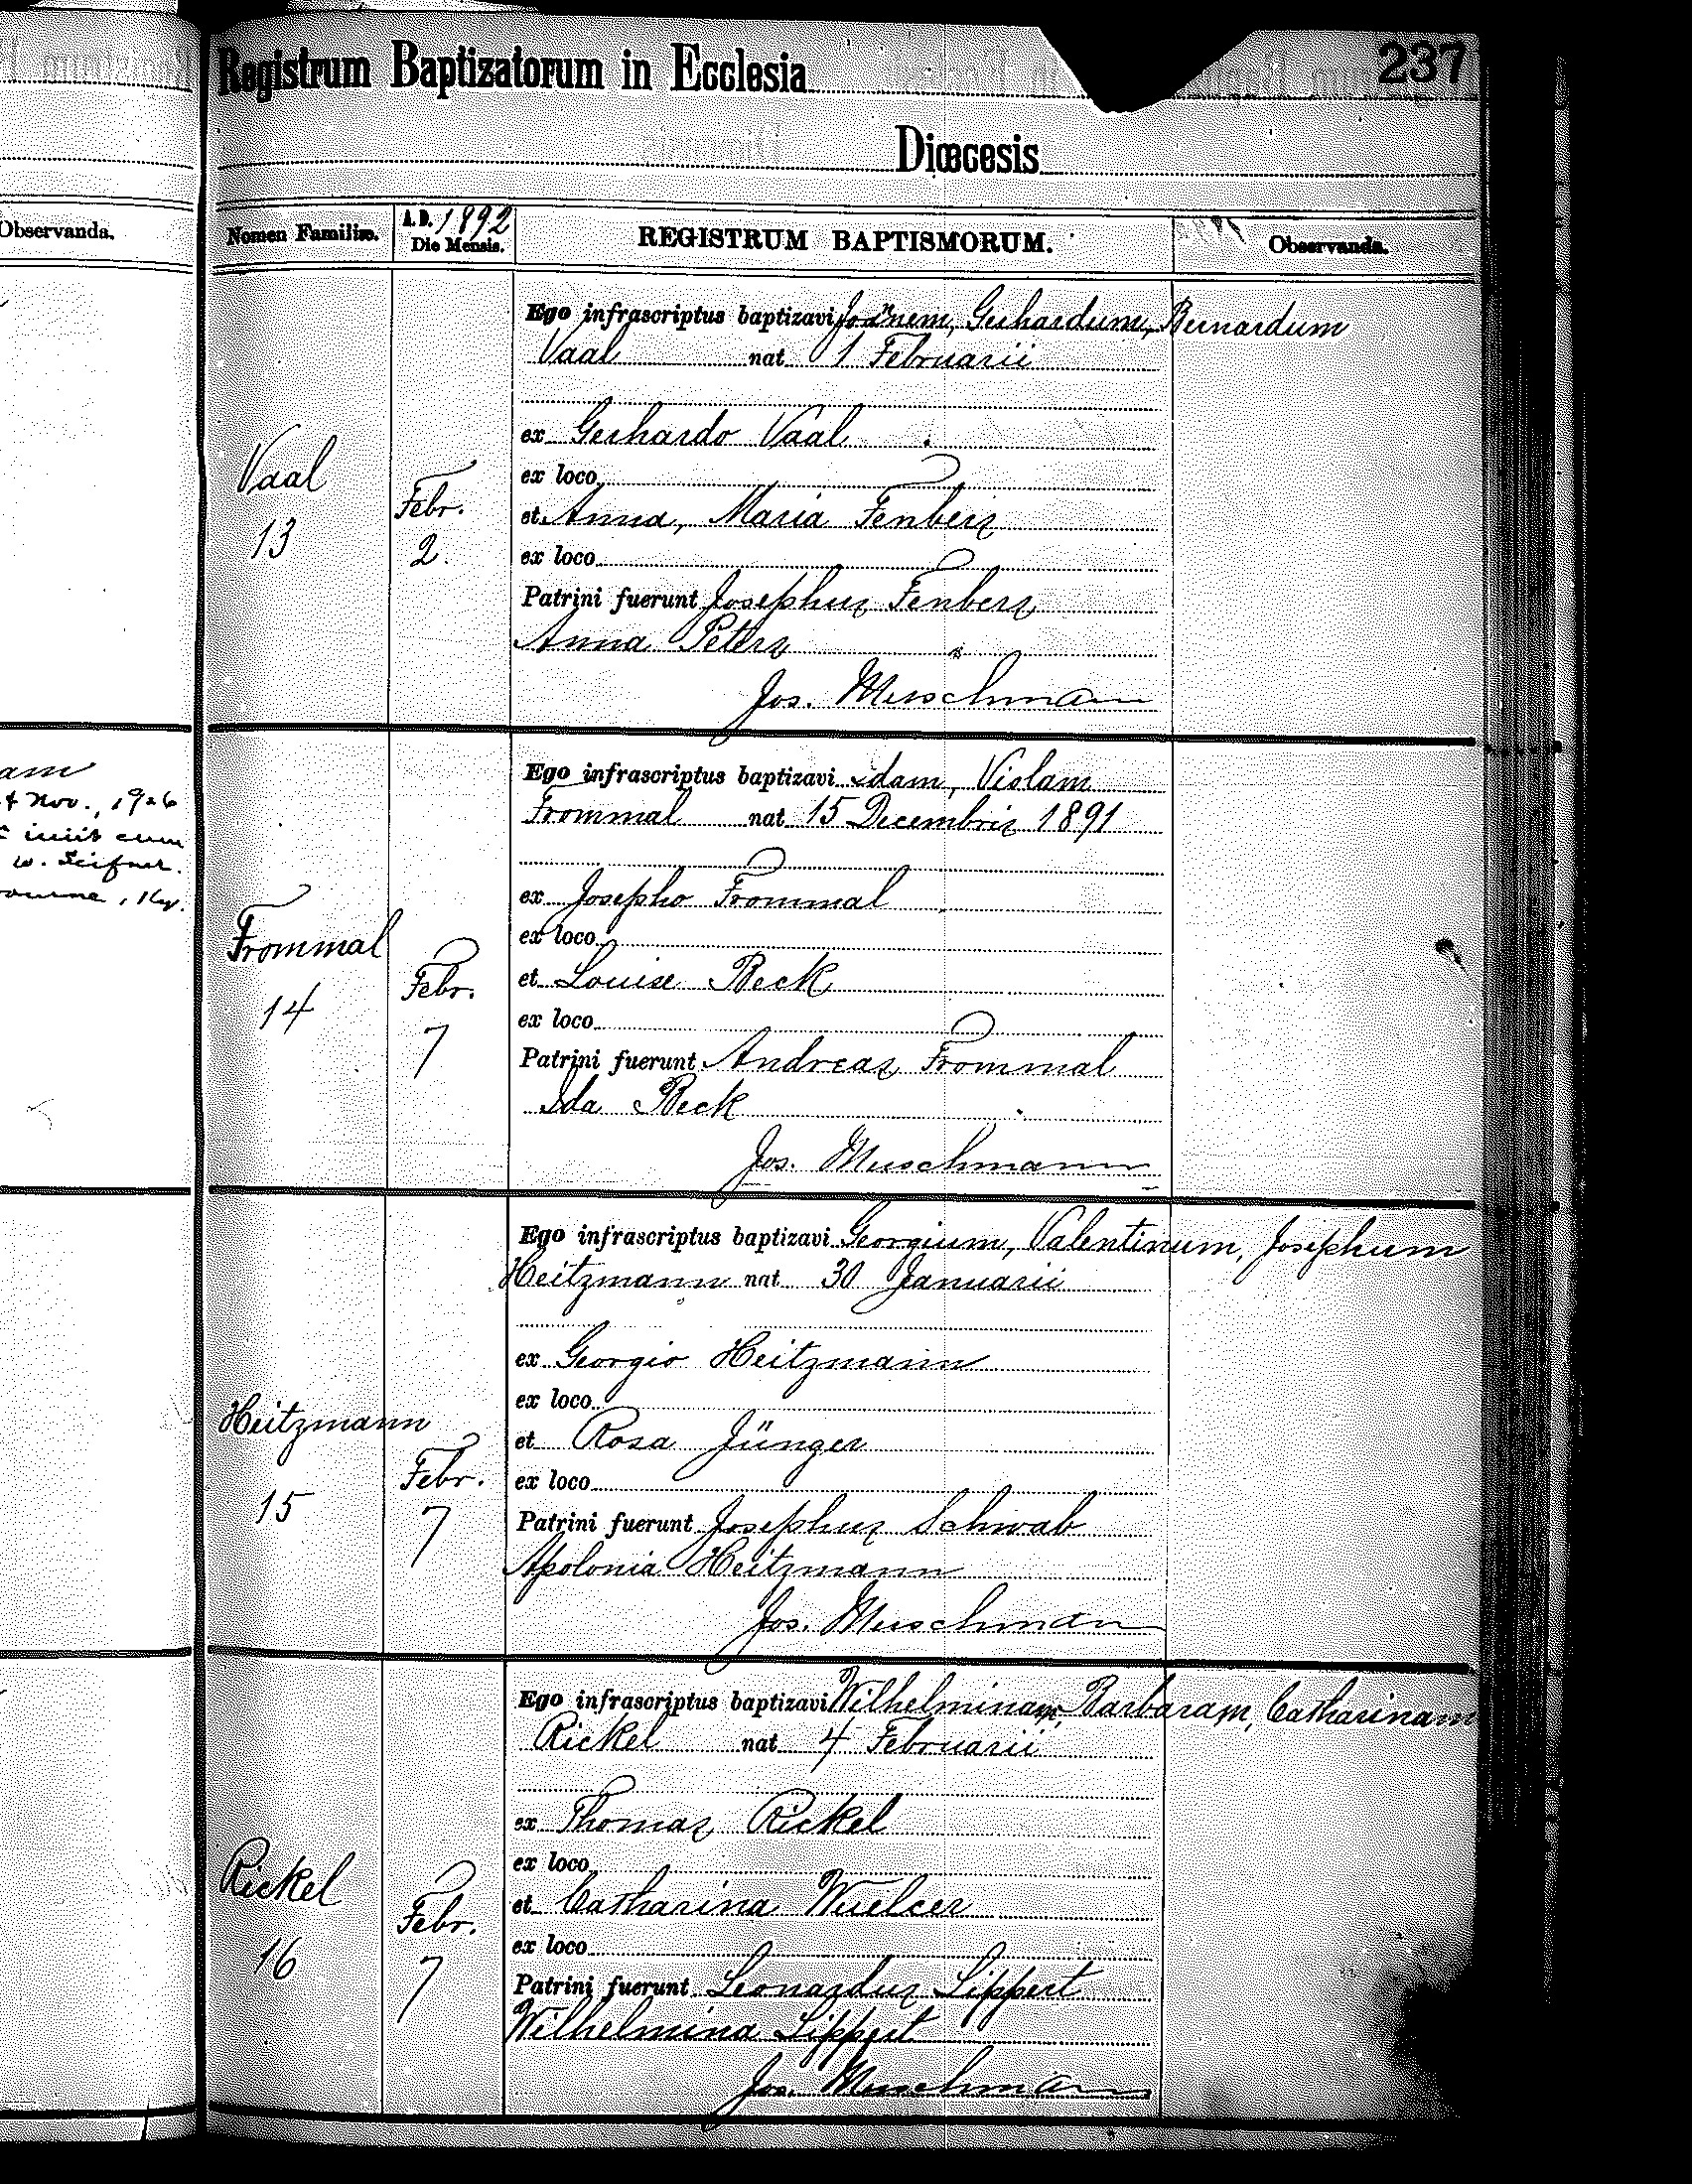 Observanda.
am
4 Nov., 1926
iniit cum
w. Leifner.
, Ky.
Registrum Baptizatorum in Ecclesia
237
Diœcesis
Nomen Familiæ.
A. D. 1892
Die Mensis.
REGISTRUM BAPTISMORUM.
Observanda.
Ego infrascriptus baptizavi Joanem, Gerhardum, Bernardum
Vaal nat 1 Februarii
ex Gerhardo Vaal
ex loco
Vaal
Febr.
et Anna, Maria Fenbers
13
2.
ex loco
Patrini fuerunt Josephus Fenbers
Anna Peters
Jos. Muschmann
Ego infrascriptus baptizavi Idam, Violam
Frommal nat 15 Decembris 1891
ex Josepho Frommal
Frommal
ex loco
Febr.
et Louise Beck
14
ex loco
7
Patrini fuerunt Andreas Frommal
Ida Beck
Jos. Muschmann
Ego infrascriptus baptizavi Georgium, Valentinum, Josephum
Heitzmann nat 30 Januarii
ex Georgio Heitzmann
ex loco
Heitzmann
et Rosa Jünger
Febr.
ex loco
15
7
Patrini fuerunt Josephus Schwab
Apolonia Heitzmann
Jos. Muschmann
Ego infrascriptus baptizavi Wilhelminam, Barbaram, Catharinam
Rickel nat 4 Februarii
ex Thomas Rickel
ex loco
Rickel
Febr.
et Catharina Wuelcer
ex loco
16
7
Patrini fuerunt Leonardus Lippert
Wilhelmina Lippert
Jos. Muschmann